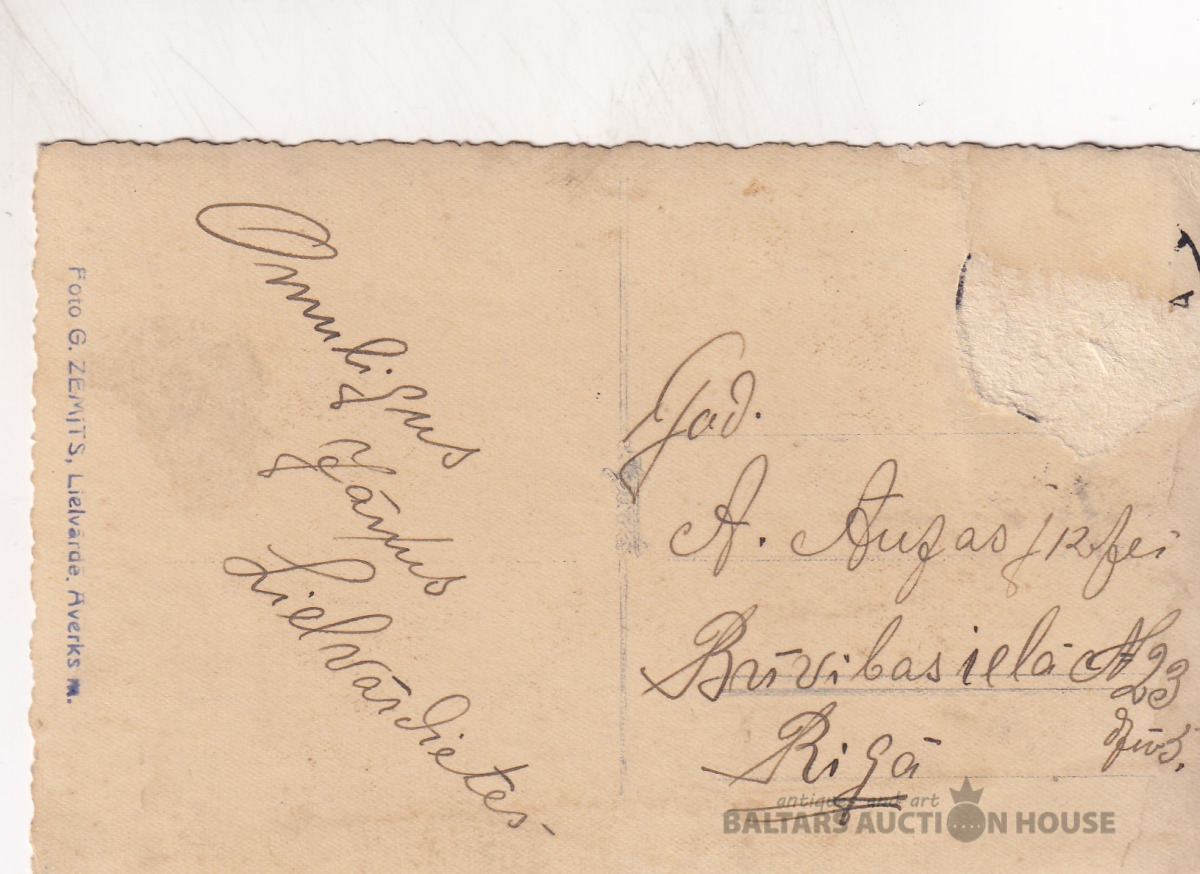 Foto G. ZEMĪTS, Lielvārde. Āverks m.
Omulīgus
Jāņus
Lielvārdietes
God.
A. Augas jk.
Brīvības ielā № 23
dzīv.
Rīgā
antiques and art
BALTARS AUCTION HOUSE